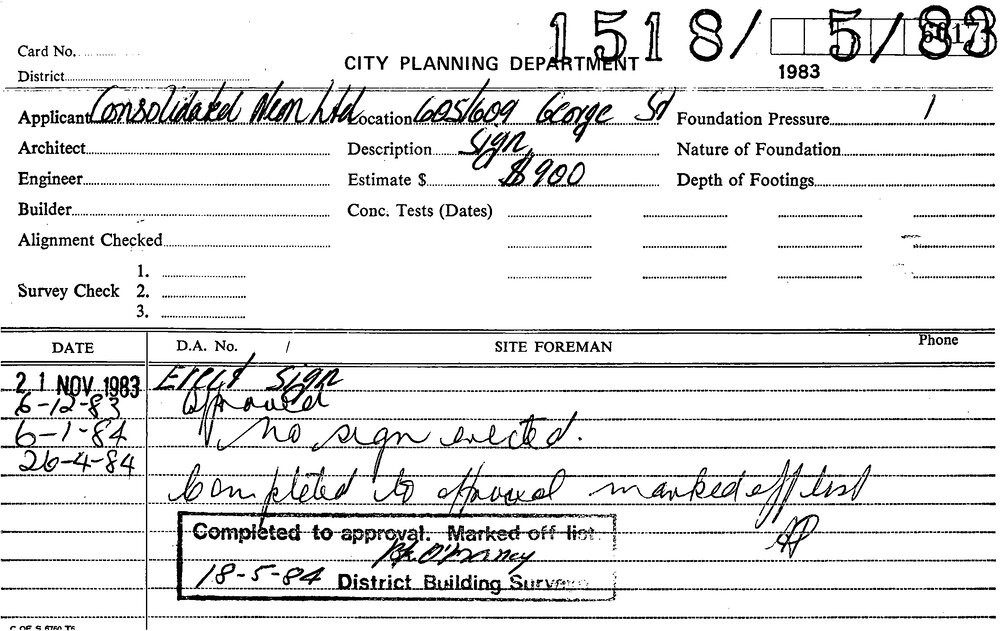 1518/ 5/83
Card No.
CITY PLANNING DEPARTMENT
1983
District
Applicant Consolidated Neon Ltd Location 605/609 George St Foundation Pressure 1
Architect Description Sign Nature of Foundation
Engineer Estimate $ $900 Depth of Footings
Builder Conc. Tests (Dates)
Alignment Checked
1.
Survey Check 2.
3.
DATE D.A. No. / SITE FOREMAN Phone
21 NOV 1983 Erect Sign
6-12-83 Approved
6-1-84 No sign erected.
26-4-84
Completed to approval marked off list
Completed to approval. Marked off list
18-5-84 District Building
C OF S 6760 T6